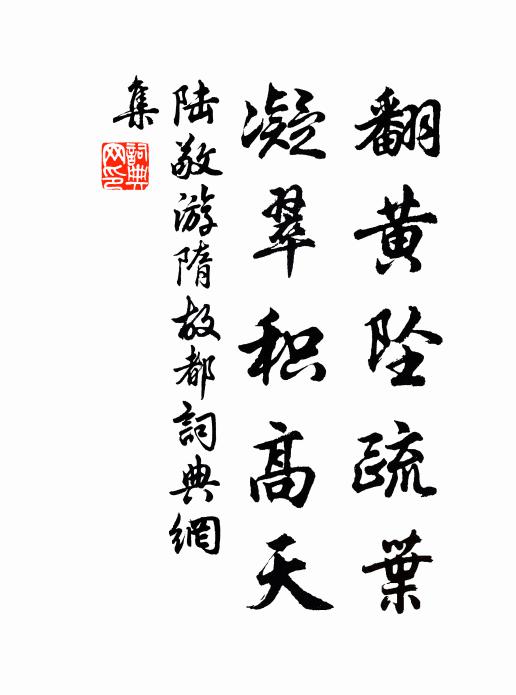 翻黄坠疏葉
凝翠积高天
陆敬游隋故都詞典網
集
詞典
网印